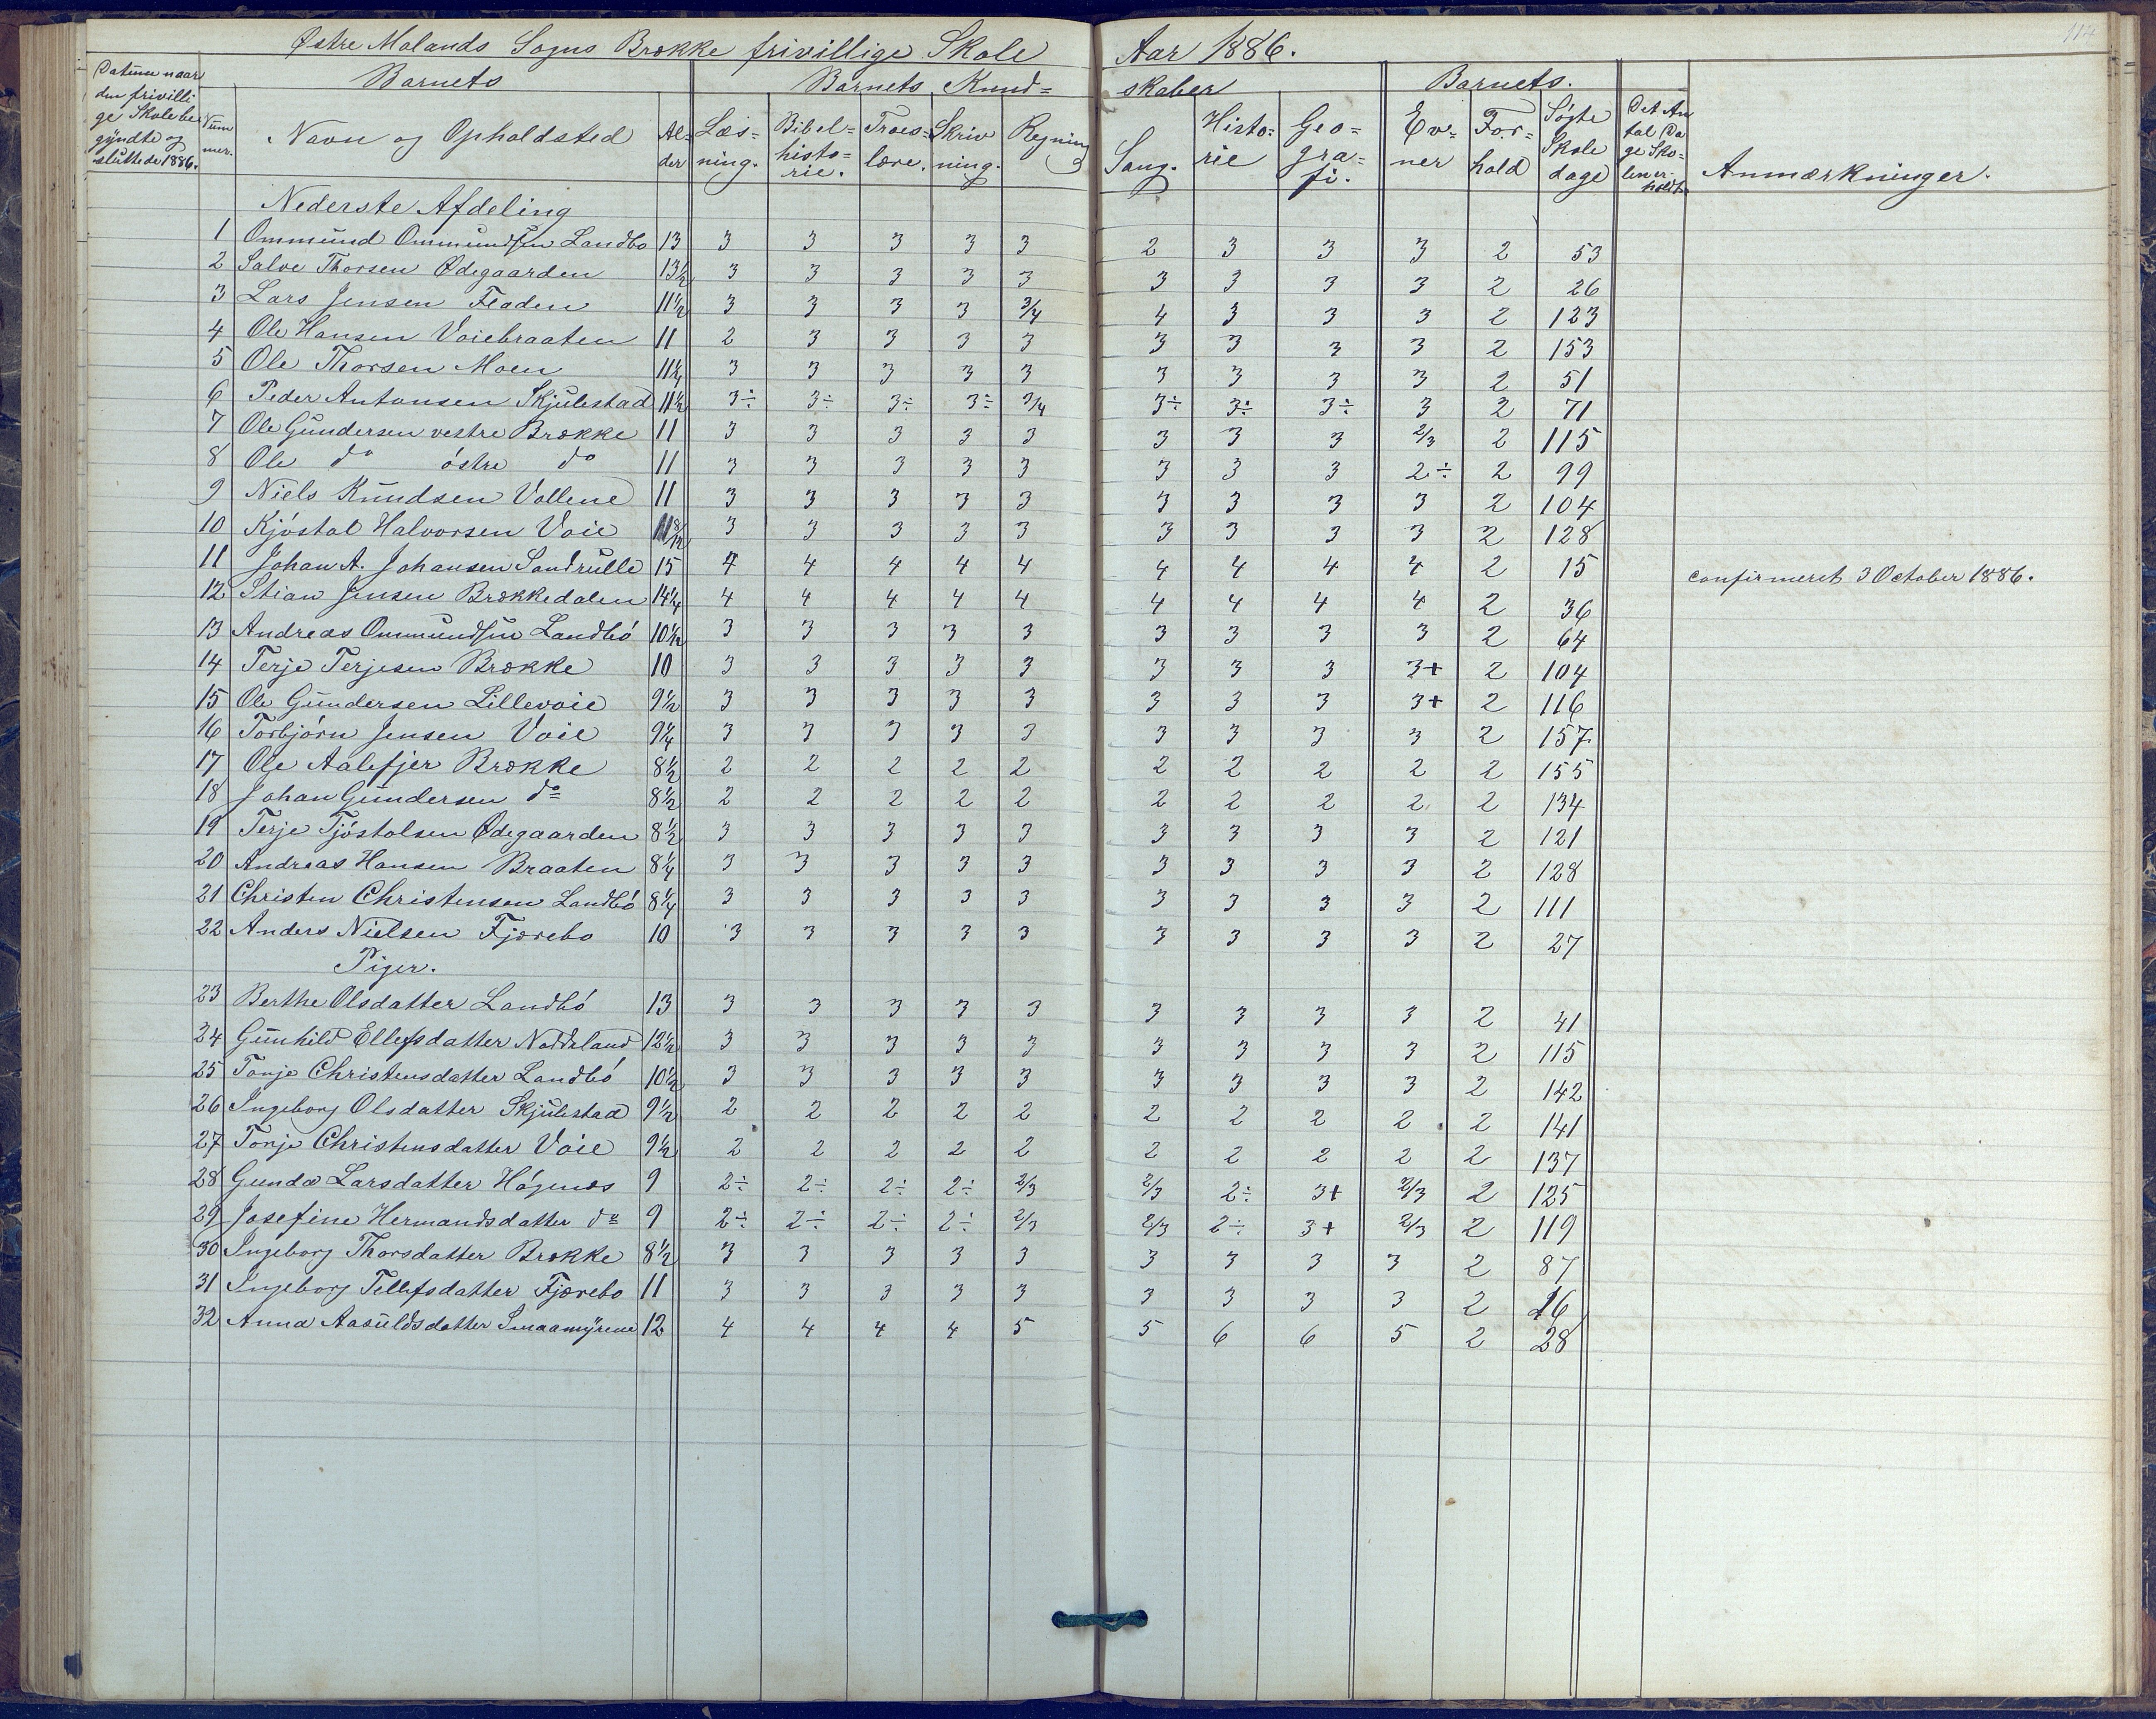 114
Østre Molands Sogns Brække frivillige Skole Aar 1886.
Datum naar den frivillige Skole begyndte og sluttede 1886. Nummer. Barnets Navn og Opholdsted Alder Barnets Kundskaber Læsning. Bibelhistorie. Troeslære. Skrivning. Regning Sang. Historie Geografi. Barnets. Evner Forhold Søgte Skoledage Det Antal Dage Skolen er holdt Anmærkninger.
Nederste Afdeling
1 Ommund Ommundsen Landbo 13 3 3 3 3 3 2 3 3 3 2 53
2 Salve Thorsen Ødegaarden 13½ 3 3 3 3 3 3 3 3 3 2 26
3 Lars Jensen Fladen 11½ 3 3 3 3 3/4 4 3 3 3 2 123
4 Ole Hansen Voiebraaten 11 2 3 3 3 3 3 3 3 3 2 153
5 Ole Thorsen Moen 11¼ 3 3 3 3 3 3 3 3 3 2 51
6 Peder Antonsen Skjulestad 11½ 3÷ 3÷ 3÷ 3÷ 3/4 3÷ 3÷ 3÷ 3 2 71
7 Ole Gundersen vestre Brække 11 3 3 3 3 3 3 3 3 2/3 2 115
8 Ole do østre do 11 3 3 3 3 3 3 3 3 2÷ 2 99
9 Niels Knudsen Vollene 11 3 3 3 3 3 3 3 3 3 2 104
10 Kjøstol Halvorsen Voie 11 8/12 3 3 3 3 3 3 3 3 3 2 128
11 Johan A. Johansen Sandrulle 15 4 4 4 4 4 4 4 4 4 2 15 confirmeret 3 October 1886.
12 Stian Jensen Brækkedalen 14¼ 4 4 4 4 4 4 4 4 4 2 36
13 Andreas Ommundsen Landbó 10½ 3 3 3 3 3 3 3 3 3 2 64
14 Terje Terjesen Brække 10 3 3 3 3 3 3 3 3 3+ 2 104
15 Ole Gundersen Lillevoie 9½ 3 3 3 3 3 3 3 3 3+ 2 116
16 Torbjørn Jensen Voie 9¼ 3 3 3 3 3 3 3 3 3 2 157
17 Ole Aalefjer Brække 8½ 2 2 2 2 2 2 2 2 2 2 155
18 Johan Gundersen do 8½ 2 2 2 2 2 2 2 2 2 2 134
19 Terje Tjóstolsen Ødegaarden 8½ 3 3 3 3 3 3 3 3 3 2 121
20 Andreas Hansen Braaten 8¼ 3 3 3 3 3 3 3 3 3 2 128
21 Christen Christensen Landbó 8¼ 3 3 3 3 3 3 3 3 3 2 111
22 Anders Nielsen Fjærebo 10 3 3 3 3 3 3 3 3 3 2 27
Piger.
23 Berthe Olsdatter Landbó 13 3 3 3 3 3 3 3 3 3 2 41
24 Gunhild Ellefsdatter Nodeland 12½ 3 3 3 3 3 3 3 3 3 2 115
25 Tonje Christensdatter Landbó 10½ 3 3 3 3 3 3 3 3 3 2 142
26 Ingeborg Olsdatter Skjulestad 9½ 2 2 2 2 2 2 2 2 2 2 141
27 Tonje Christensdatter Voie 9½ 2 2 2 2 2 2 2 2 2 2 137
28 Gunda Larsdatter Høgenæs 9 2÷ 2÷ 2÷ 2÷ 2/3 2/3 2÷ 3+ 2/3 2 125
29 Josefine Hermandsdatter do 9 2÷ 2÷ 2÷ 2÷ 2/3 2/3 2÷ 3+ 2/3 2 119
30 Ingeborg Thorsdatter Brække 8½ 3 3 3 3 3 3 3 3 3 2 87
31 Ingeborg Tellefsdatter Fjærebo 11 3 3 3 3 3 3 3 3 3 2 16
32 Anna Aasuldsdatter Smaamyrene 12 4 4 4 4 5 5 6 6 5 2 28